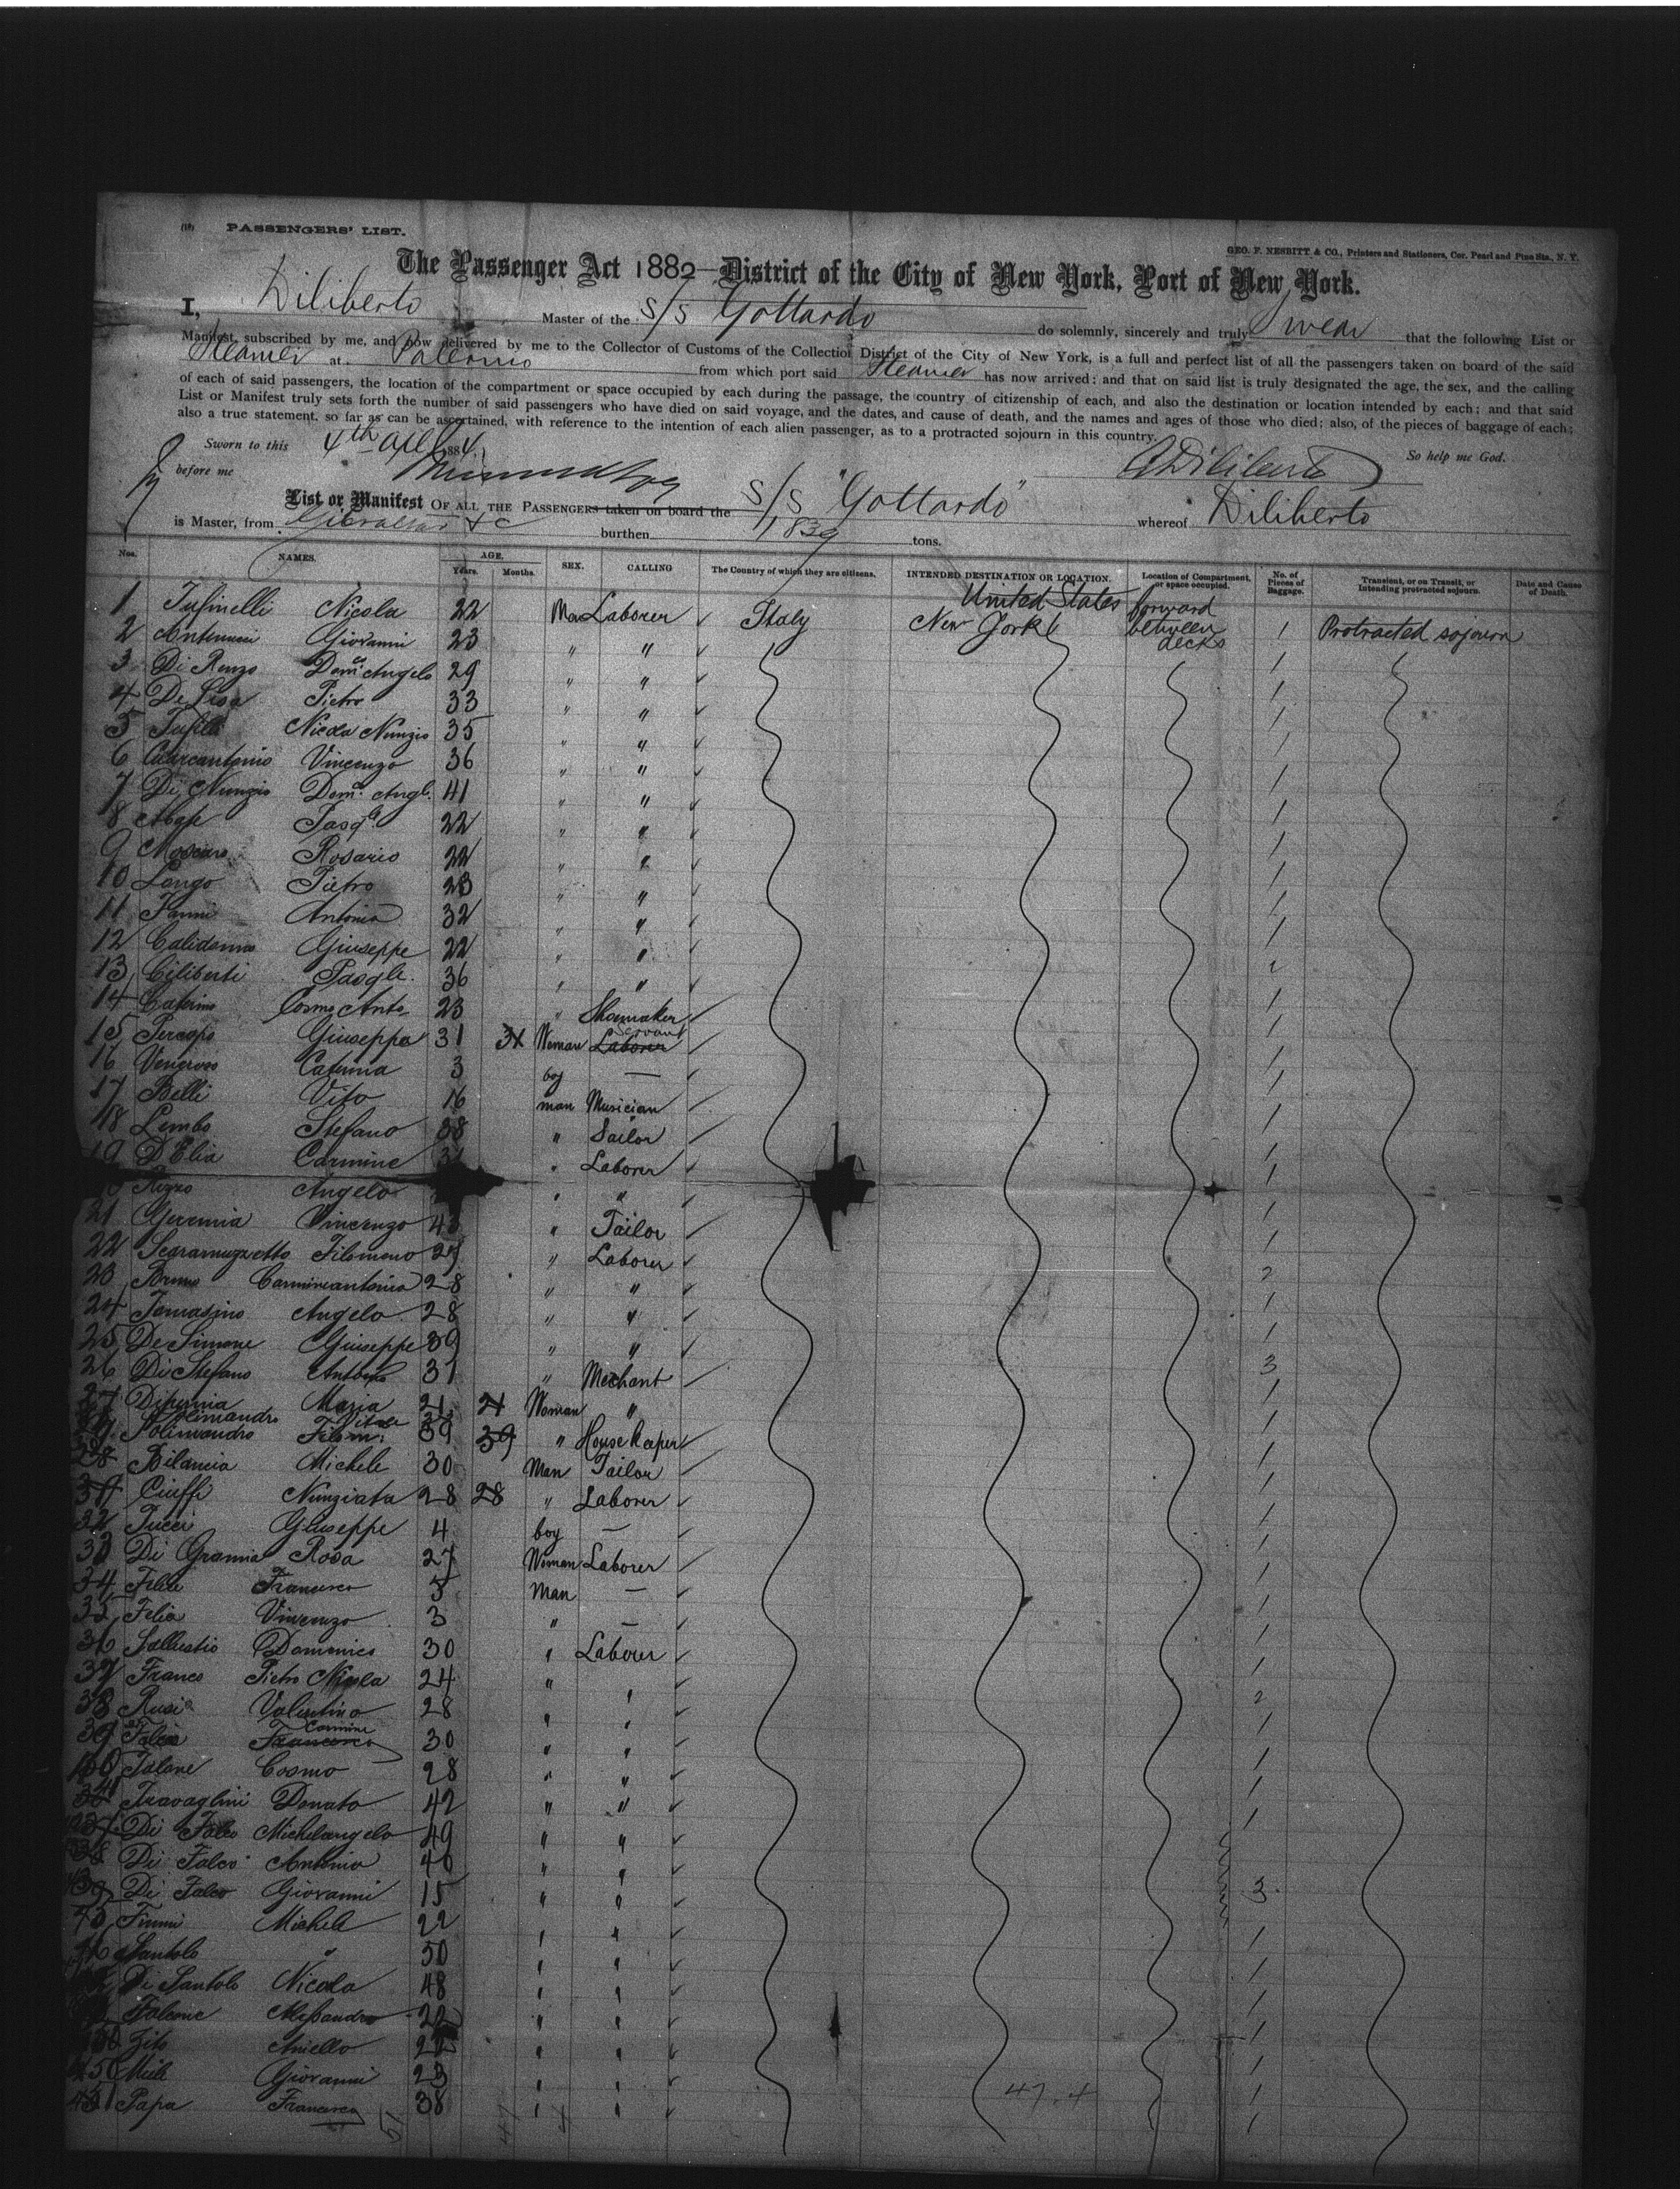 (18) PASSENGERS' LIST.
GEO. F. NESBITT & CO., Printers and Stationers, Cor. Pearl and Pine Sts., N. Y.
The Passenger Act 1882—District of the City of New York, Port of New York.
I, Diliberto Master of the S/S Gottardo do solemnly, sincerely and truly swear that the following List or
Manifest, subscribed by me, and now delivered by me to the Collector of Customs of the Collection District of the City of New York, is a full and perfect list of all the passengers taken on board of the said
Steamer at Palermo from which port said Steamer has now arrived; and that on said list is truly designated the age, the sex, and the calling
of each of said passengers, the location of the compartment or space occupied by each during the passage, the country of citizenship of each, and also the destination or location intended by each; and that said
List or Manifest truly sets forth the number of said passengers who have died on said voyage, and the dates, and cause of death, and the names and ages of those who died; also, of the pieces of baggage of each;
also a true statement, so far as can be ascertained, with reference to the intention of each alien passenger, as to a protracted sojourn in this country.
So help me God.
Sworn to this 4th 1884
before me
Diliberto
List or Manifest OF ALL THE PASSENGERS taken on board the S/S "Gottardo" whereof Diliberto
is Master, from Gibraltar &c burthen 1839 tons.
Nos. NAMES. AGE. Years. Months. SEX. CALLING The Country of which they are citizens. INTENDED DESTINATION OR LOCATION. Location of Compartment, or space occupied. No. of Pieces of Baggage. Transient, or on Transit, or Intending protracted sojourn. Date and Cause of Death.
United States forward
1 Tufinelli Nicola 22 Man Laborer Italy New York between decks 1 Protracted sojourn
2 Antenucci Giovanni 23 " " 1
3 Di Renzo Dom. Angelo 29 " " 1
4 De Lisa Pietro 33 " " 1
5 Nicola Nunzio 35 " " 1
6 Marcantonio Vincenzo 36 " " 1
7 Di Nunzio Dom. Angl. 41 " " 1
8 Pasqle 22 " "
9 Rosario 22 " " 1
10 Longo Pietro 28 " " 1
11 Antonio 32 " " 1
12 Giuseppe 22 " " 1
13 Ciliberti Pasqle. 36 " "
14 Caterino Cosmo Anto 23 " Shomaker
15 Giuseppa 31 31 Woman Laborer Servant 1
16 Caterina 3 boy — 1
17 Belli Vito 16 man Musician 1
18 Lembo Stefano 38 " Sailor 1
19 D'Elia Carmine " Laborer 1
Rizzo Angelo " " 1
21 Geremia Vincenzo " Tailor 1
22 Scaramuzzetto Filomeno " Laborer
23 Bruno Carmineantonio 28 " " 2
24 Tomasino Angelo 28 " " 1
25 De Simone Giuseppe 39 " " 1
26 Di Stefano Antonio 31 " Mechant 3
27 Maria 21 21 Woman " 1
Polimandro
Polimandro Filom. 39 39 " House Keeper 1
Bilancia Michele 30 Man Tailor 1
Ciuffi Nunziata 28 28 " Laborer 1
32 Tucci Giuseppe 4 boy — 1
33 Di Grannia Rosa 27 Woman Laborer 1
34 Felice Francesco 5 Man — 1
35 Felia Vincenzo 3 " — 1
36 Sallustio Domenico 30 " Laborer 1
37 Franco Pietro Nicola 24 " " 1
38 Valentino 28 " " 2
39 Francesco Carmine 30 " " 1
Falone Cosmo 28 " " 1
Travaglini Donato 42 " " 1
Di Falco Michelangelo 49 " " 1
Di Falco Antonio 40 " "
Di Falco Giovanni 15 " " 3
Michele 22 " " 1
Santolo " 50 " " 1
Di Santolo Nicola 48 " " 1
Falcone Alessandro 22 " " 1
Zito Aniello " " 1
Miele Giovanni 23 " " 1
Papa Francesco 38 " " 1
47.4
51